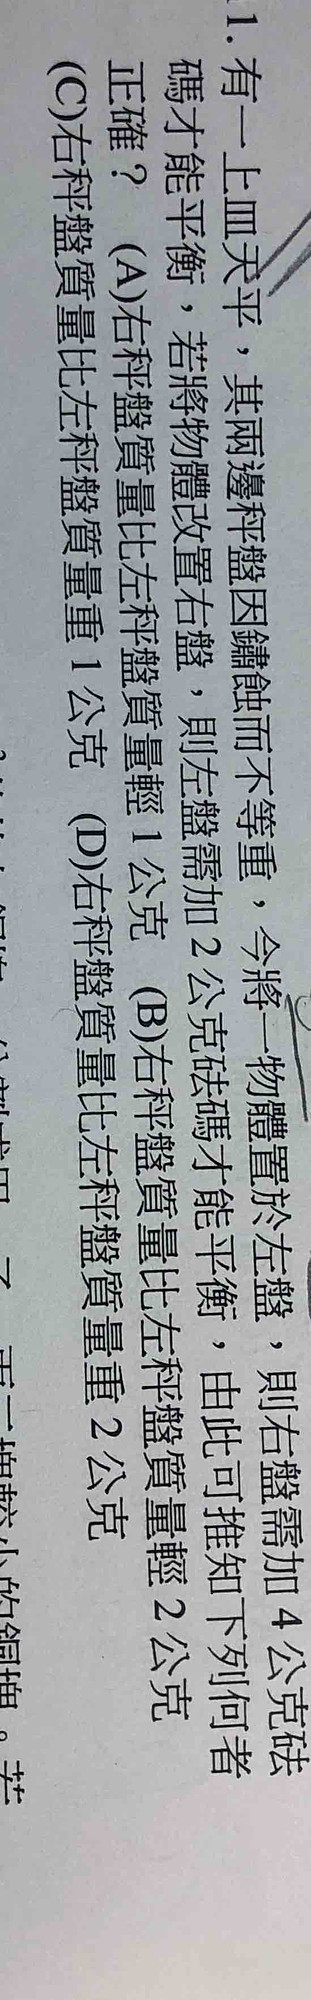 1. 有一上皿天平，其兩邊秤盤因鏽蝕而不等重，今將一物體置於左盤，則右盤需加 4 公克砝
碼才能平衡，若將物體改置右盤，則左盤需加 2 公克砝碼才能平衡，由此可推知下列何者
正確？ (A)右秤盤質量比左秤盤質量輕 1 公克 (B)右秤盤質量比左秤盤質量輕 2 公克
(C)右秤盤質量比左秤盤質量重 1 公克 (D)右秤盤質量比左秤盤質量重 2 公克